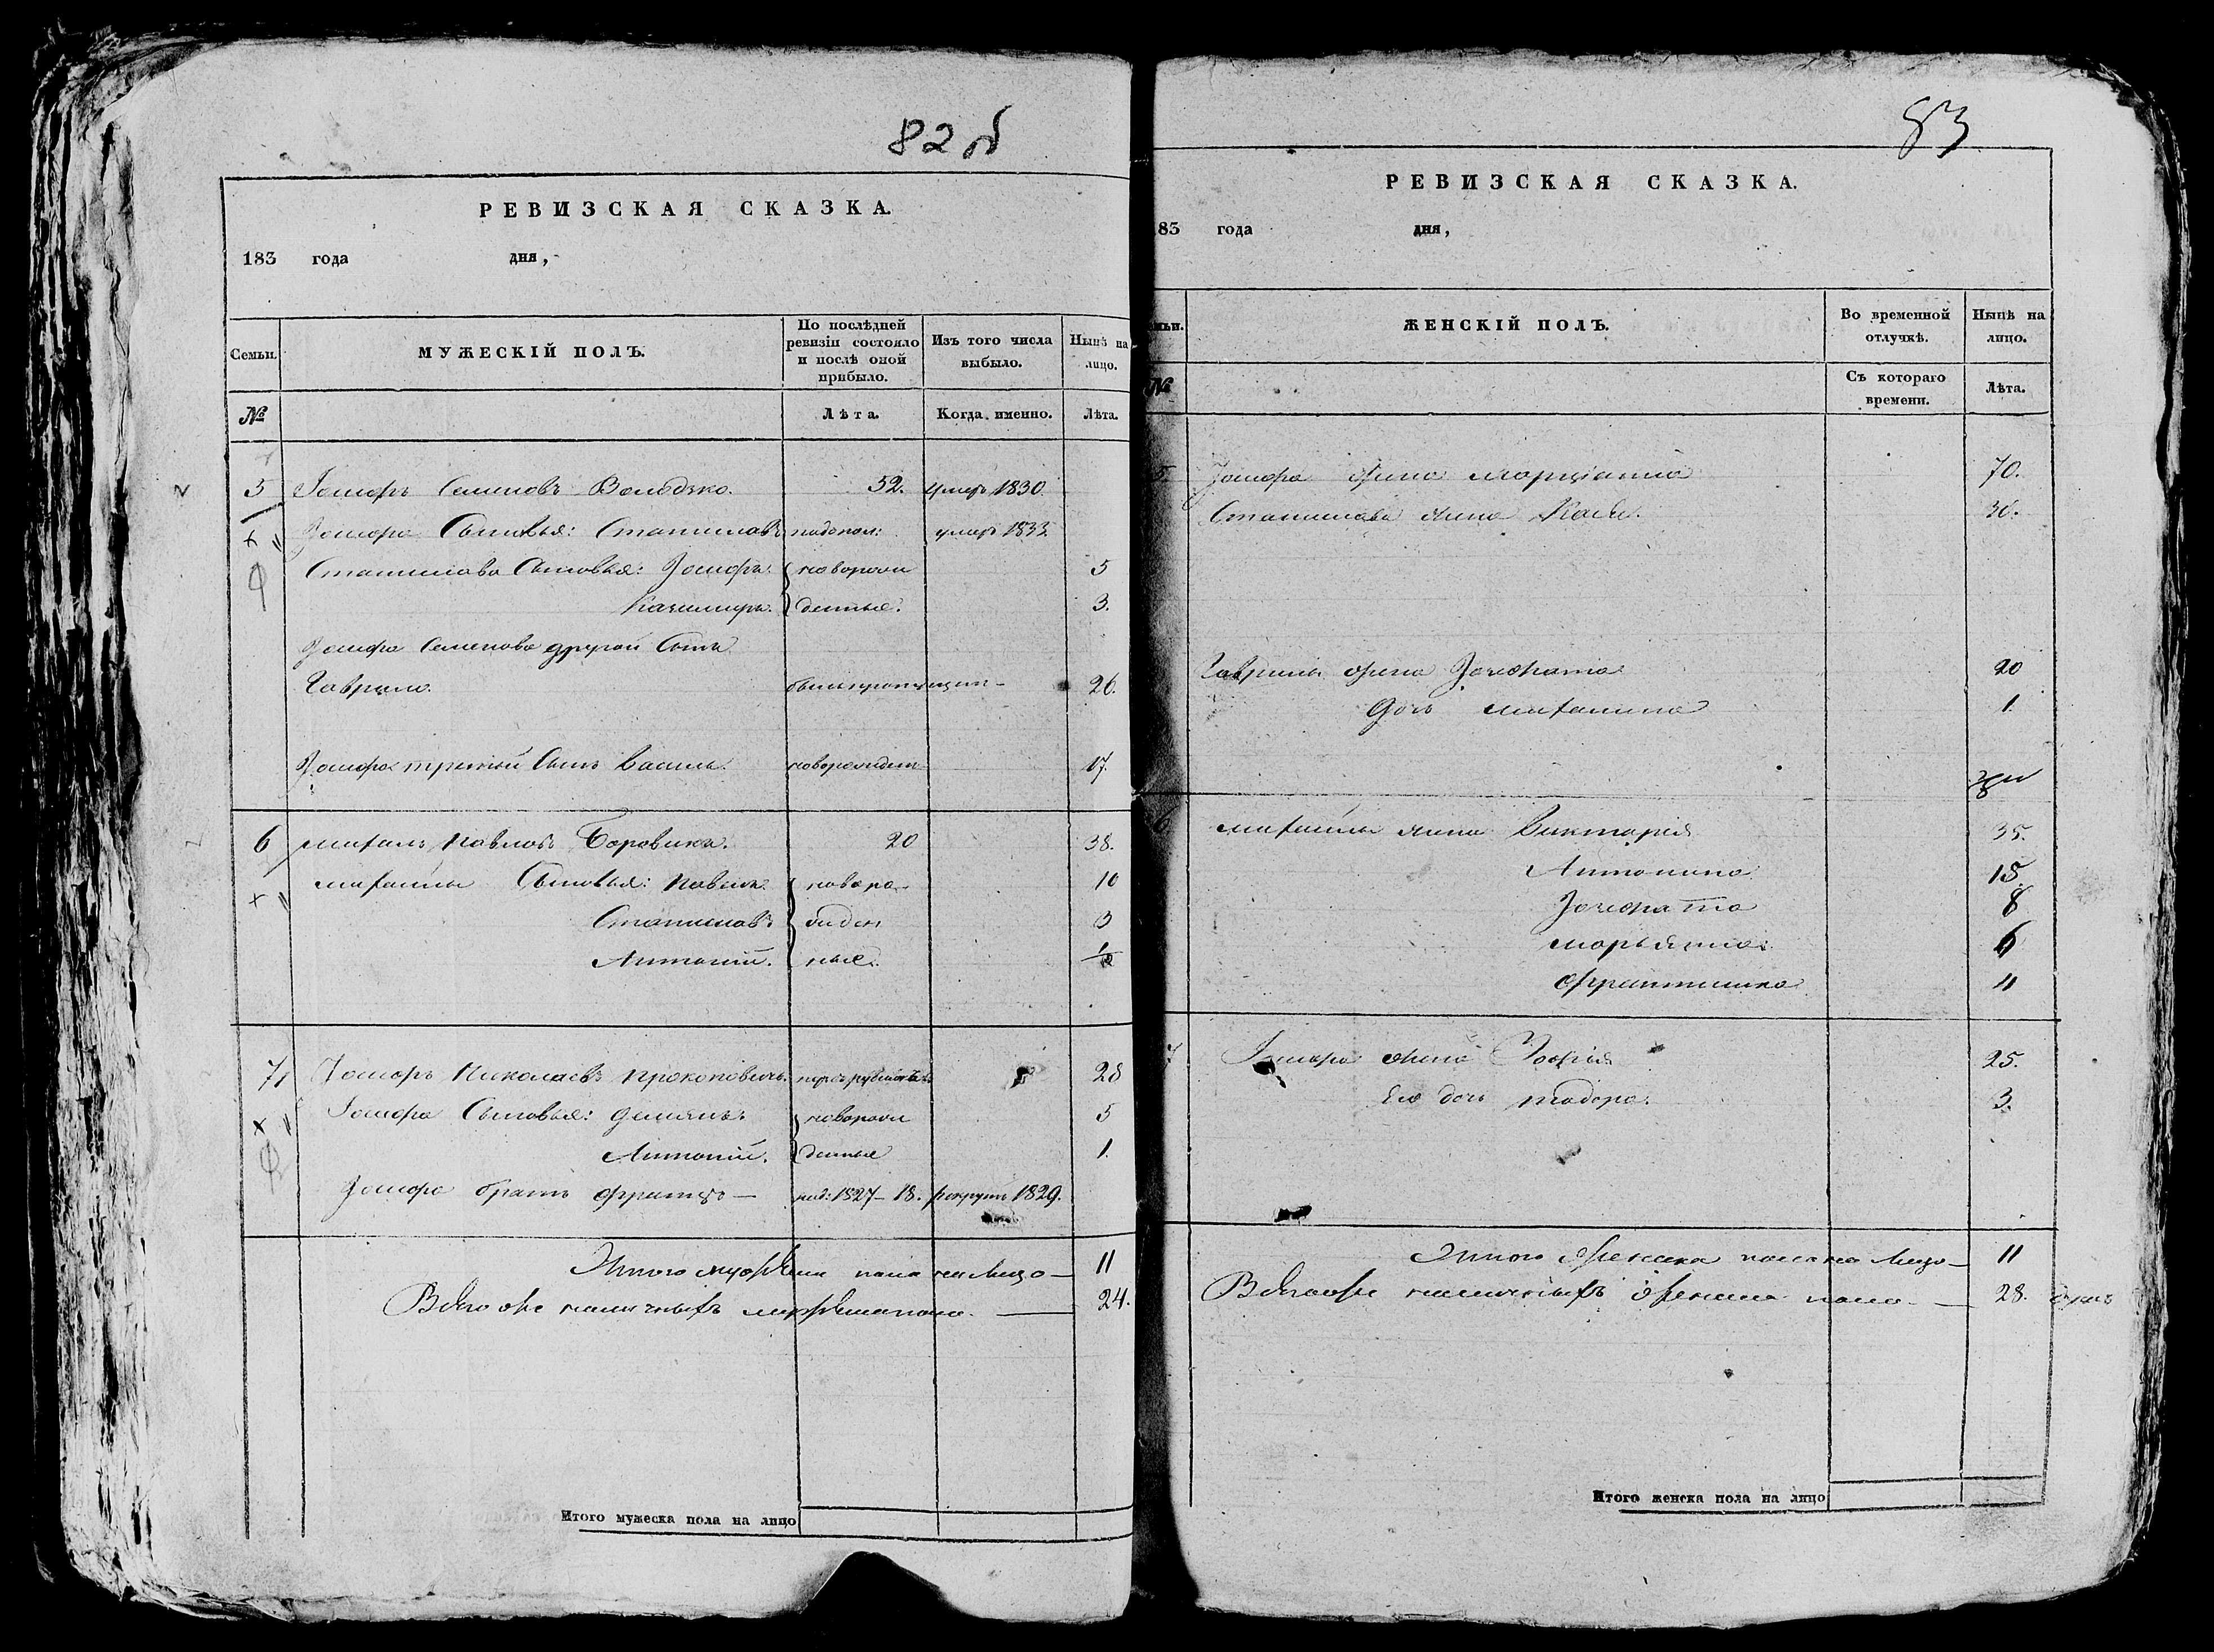 82 об
РЕВИЗСКАЯ СКАЗКА.
183 года дня,
Семьи. МУЖЕСКІЙ ПОЛЪ. По послѣдней ревизіи состояло и послѣ оной прибыло. Изъ того числа выбыло. Нынѣ на лицо.
№ Лѣта. Когда именно. Лѣта.
5 Іосифъ Семеновъ Володзко. 52. умеръ 1830
Іосифа Сыновья: Станиславъ умеръ 1833
Станислава Сыновья: Іосифъ новорож 5
Казимиръ. денные. 3.
Іосифа Семенова другой Сынъ
Гаврило. 26.
Іосифа третій Сынъ Василь. новорожден 17.
6 Михаилъ Павловъ Боровикъ. 20 38.
Михайлы Сыновья: Павелъ новоро 10
Станиславъ жден 3
Антоній. ные. 1/2
7 Іосифъ Николаевъ Прокоповичъ. 28
Іосифа Сыновья: Демьянъ новорож 5
Антоній. денные 1.
Іосифа братъ Францъ — 1827 – 18. рекрутъ 1829.
Итого мужеска пола на лицо — 11
Всего же наличныхъ мужеска пола. — 24.
Итого мужеска пола на лицо
83
РЕВИЗСКАЯ СКАЗКА.
183 года дня,
Семьи. ЖЕНСКІЙ ПОЛЪ. Во временной отлучкѣ. Нынѣ на лицо.
№ Съ котораго времени. Лѣта.
5. Іосифа жена Марціанна 70.
Станислава жена 30.
Гаврилы жена Іозефата 20
дочь 1.
6 Михайлы жена Викторія 35.
Антонина 15
Іозефата 8
Марьянна 6
Франтишка 4
7 Іосифа жена Зофія 25.
Его дочь Теодора. 3.
Итого женска пола на лицо — 11
Всего же наличныхъ женска пола — 28. душъ
Итого женска пола на лицо